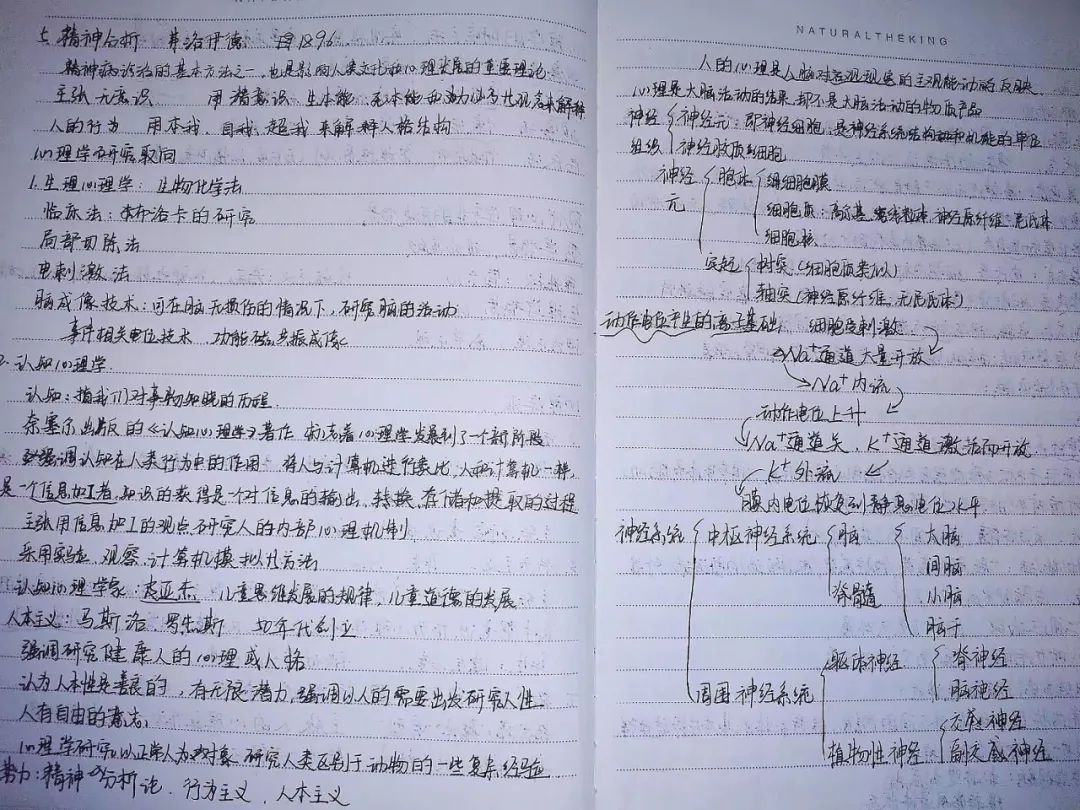 七.精神分析 弗洛伊德 1896
精神病诊治的基本方法之一,也是影响人类文化和心理发展的重要理论
主张 无意识 用潜意识 生本能
人的行为 用本我、自我、超我来解释人格结构
心理学研究取向
1.生理心理学: 生物化学法
临床法:布洛卡的研究
局部切除法
电刺激法
脑成像技术:可在脑无损伤的情况下,研究脑的活动
事件相关电位技术、功能磁共振成像
2.认知心理学
认知:指我们对事物知晓的历程
奈塞尔出版的《认知心理学》著作 标志着心理学发展到了一个新阶段
强调认知在人类行为中的作用 将人与计算机进行类比,人和计算机一样,
是一个信息加工者,知识的获得是一个对信息的输出、转换、存储和提取的过程
主张用信息加工的观点研究人的内部心理机制
采用实验、观察、计算机模拟等方法
认知心理学家:皮亚杰 儿童思维发展的规律,儿童道德的发展
人本主义:马斯洛 罗杰斯 年代创立
强调研究健康人的心理或人格
认为人本性是善良的,有无限潜力,强调以人的需要出发研究人性
人有自由的意志
心理学研究以正常人为对象 研究人类区别于动物的一些复杂经验
势力:精神分析论、行为主义、人本主义
NATURALTHEKING
人的心理是人脑对客观现实的主观能动的反映
心理是大脑活动的结果,却不是大脑活动的物质产品
神经组织 神经元:即神经细胞,是神经系统结构和机能的单位
神经胶质细胞
神经元 胞体 细胞膜
细胞质:高尔基、线粒体、神经原纤维、尼氏体
细胞核
突起 树突(细胞质类似)
轴突(神经原纤维,无尼氏体)
动作电位产生的离子基础: 细胞受刺激
→Na⁺通道大量开放
→Na⁺内流
动作电位上升
→Na⁺通道关、K⁺通道激活而开放
K⁺外流
膜内电位恢复到静息电位水平
神经系统 中枢神经系统 脑 大脑
间脑
脊髓 小脑
脑干
躯体神经 脊神经
周围神经系统 脑神经
交感神经
植物性神经 副交感神经